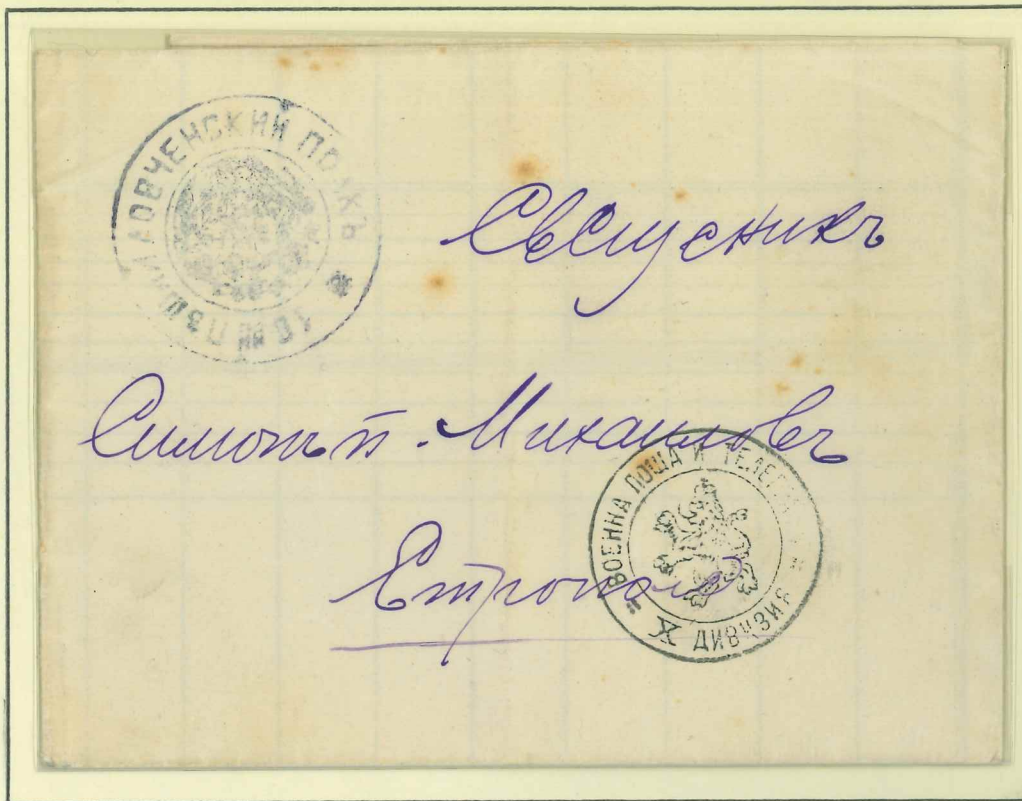 ЛОВЧЕНСКИЙ ПОЛКЪ
Свещеникъ
Симонъ п. Михаиловъ
Етрополе
ВОЕННА ПОЩА И
X ДИВИЗИЯ